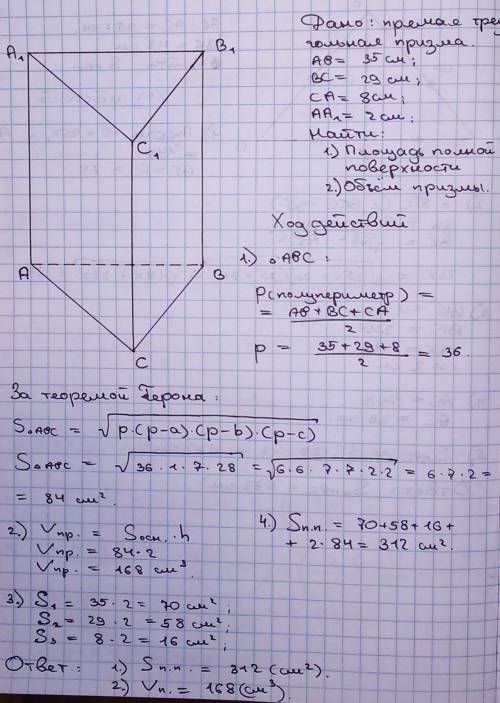 A₁
B₁
C₁
A
B
C
Дано: прямая треу
гольная призма.
AB = 35 см;
BC = 29 см;
CA = 8 см;
AA₁ = 2 см.
Найти:
1) Площадь полной
поверхности
2.) Объём призмы.
Ход действий
1.) △ABC:
P(полупериметр) =
= (AB + BC + CA) / 2
p = (35 + 29 + 8) / 2 = 36.
За теоремой Герона:
S△ABC = √(p·(p-a)·(p-b)·(p-c))
S△ABC = √(36·1·7·28) = √(6·6·7·7·2·2) = 6·7·2 =
= 84 см².
2.) Vпр. = Sосн.·h
Vпр. = 84·2
Vпр. = 168 см³.
3.) S₁ = 35·2 = 70 см²;
S₂ = 29·2 = 58 см²;
S₃ = 8·2 = 16 см²;
4.) Sп.п. = 70+58+16+
+ 2·84 = 312 см².
Ответ: 1) Sп.п. = 312 (см²).
2.) Vп. = 168 (см³).